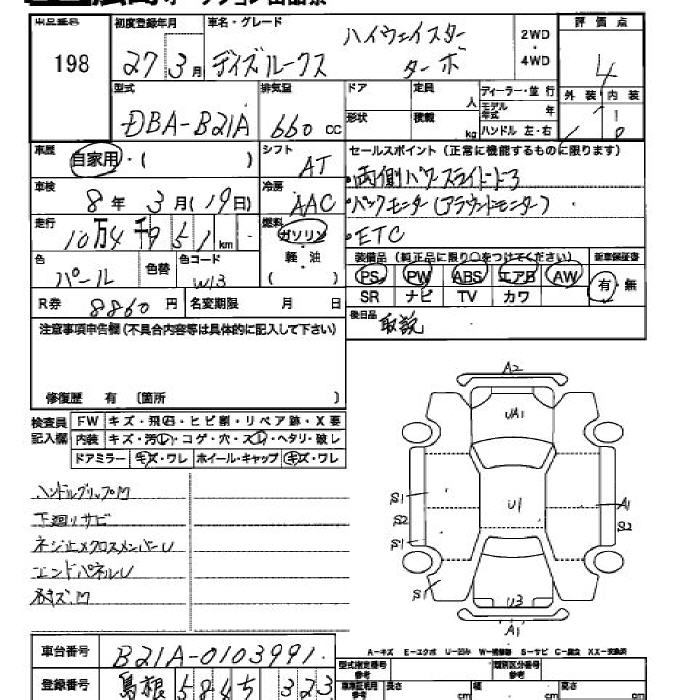 出品番号 初度登録年月 車名・グレード 評価点
198 27年3月 デイズルークス ハイウェイスター ターボ 2WD・4WD 4
型式 排気量 ドア 定員 人 ディーラー・並行 外装 内装
DBA-B21A 660cc 形状 積載 kg モデル年式 年
ハンドル 左・右
車歴 シフト セールスポイント(正常に機能するものに限ります)
自家用・( ) AT ・両側パワースライドドア
車検 冷房 ・バックモニター(アラウンドモニター)
8年 3月(19日) AAC ・ETC
走行 燃料
10万4千951km ガソリン・軽油( )
色 色替 色コード 装備品(純正品に限り○をつけてください) 新車保証書
パール W13 PS PW ABS エアB AW 有・無
R券 8860円 名変期限 月 日 SR ナビ TV カワ
注意事項申告欄(不具合内容等は具体的に記入して下さい) 後日品
取説
修復歴 有 〔箇所 〕
検査員記入欄 FW キズ・飛石・ヒビ割・リペア跡・X要
内装 キズ・汚レ・コゲ・穴・スレ・ヘタリ・破レ
ドアミラー キズ・ワレ ホイール・キャップ キズ・ワレ
ハンドルグリップM
下廻りサビ
ネジ止メクロスメンバーU
エンドパネルU
A2
UA1
S1
U1
A1
S2
S2
S1
S1
U3
A1
A-キズ E-エクボ U-凹み W-補修跡 S-サビ C-腐食 XX-交換済
車台番号 B21A-0103991
型式指定番号 参考 類別区分番号 参考
登録番号 島根 5845 323
車庫証明用 参考 長さ cm 幅 cm 高さ cm